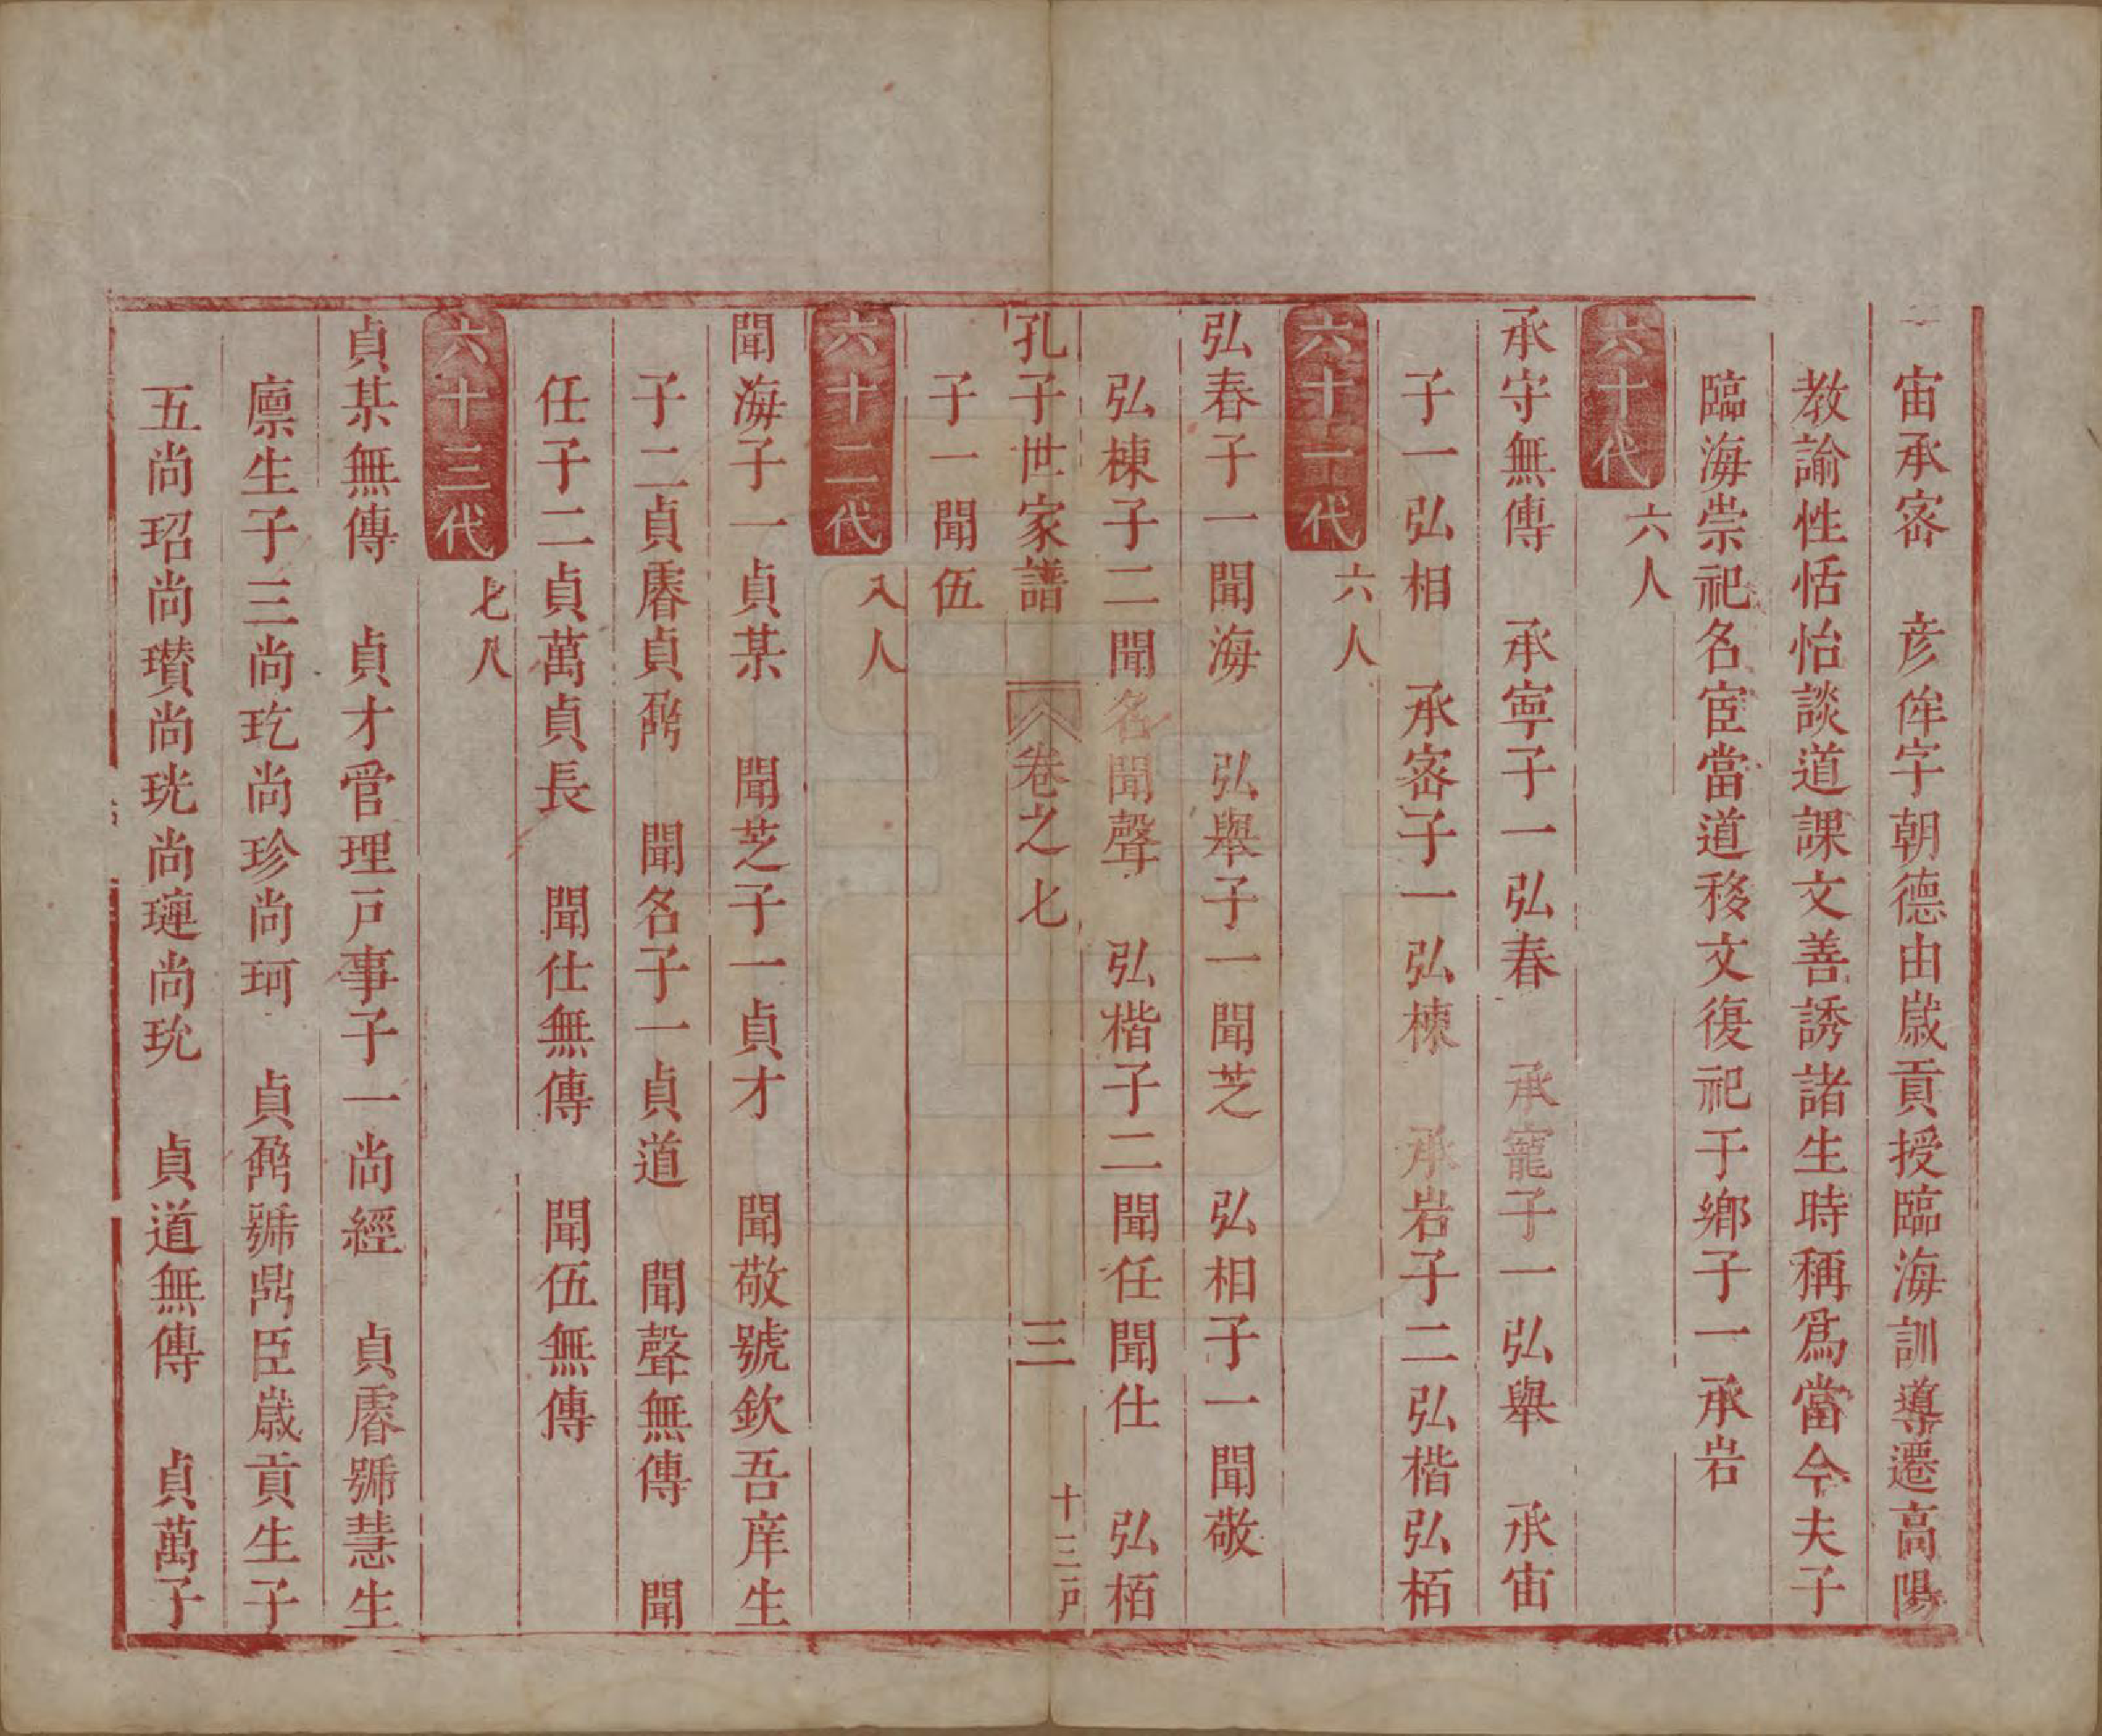 宙承宻　彦侔字朝德由歲貢授臨海訓導遷高陽
教諭性恬怡談道課文善誘諸生時稱爲當今夫子
臨海崇祀名宦當道移文復祀于鄉子一承岩
六十代　六人
承守無傳　承寧子一弘春　承寵子一弘舉　承宙
子一弘相　承宻子一弘棟　承岩子二弘楷弘栢
六十一代　六人
弘春子一聞海　弘舉子一聞芝　弘相子一聞敬
弘棟子二聞名聞聲　弘楷子二聞任聞仕　弘栢
孔子世家譜　卷之七　三　十三戸
子一聞伍
六十二代　八人
聞海子一貞某　聞芝子一貞才　聞敬號欽吾庠生
子二貞　貞　聞名子一貞道　聞聲無傳　聞
任子二貞萬貞長　聞仕無傳　聞伍無傳
六十三代　七人
貞某無傳　貞才管理戸事子一尚經　貞　號慧生
廩生子三尚玧尚珍尚珂　貞　號鼎臣歲貢生子
五尚玿尚瓚尚珖尚璉尚玧　貞道無傳　貞萬子